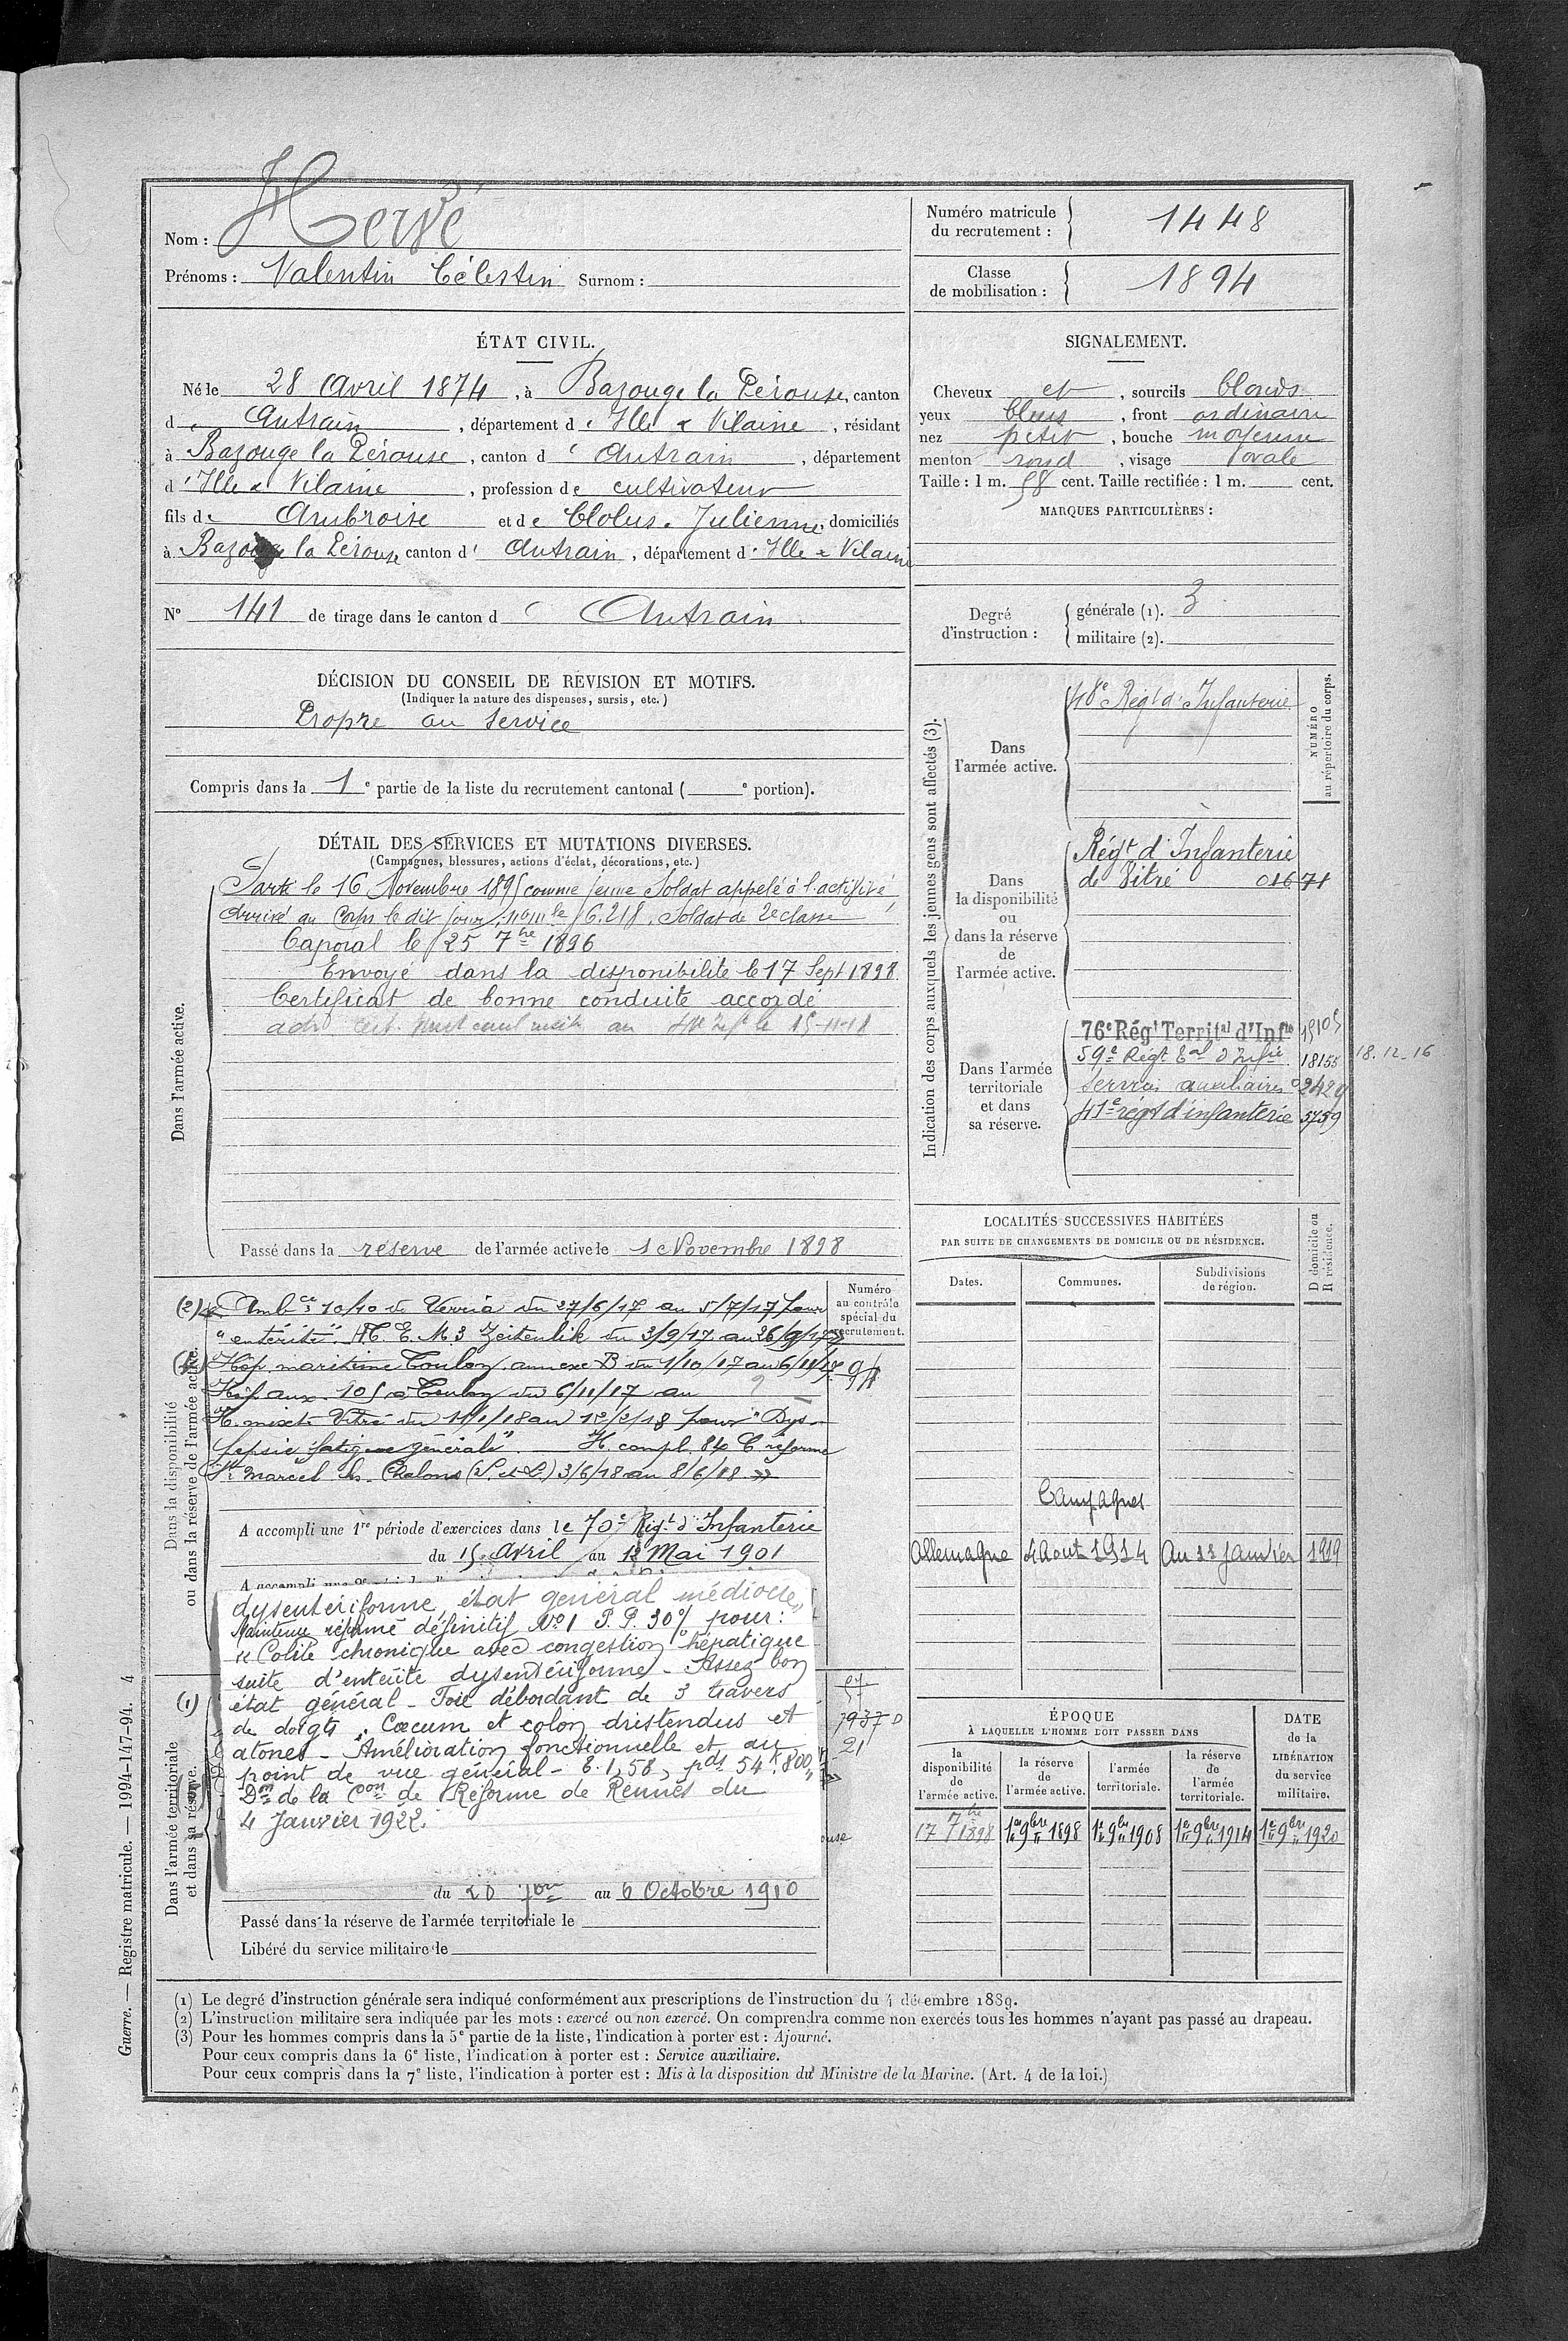 Nom : Hervé
Prénoms : Valentin Célestin Surnom :
Numéro matricule du recrutement : 1448
Classe de mobilisation : 1894
ÉTAT CIVIL.
Né le 28 Avril 1874, à Bazouge la Pérouse, canton
d' Antrain, département d' Ille & Vilaine, résidant
à Bazouge la Pérouse, canton d' Antrain, département
d' Ille & Vilaine, profession de cultivateur
fils de Ambroise et de Clolus Julienne, domiciliés
à Bazouge la Pérouse canton d' Antrain, département d' Ille & Vilaine
N° 141 de tirage dans le canton d' Antrain
SIGNALEMENT.
Cheveux et, sourcils blonds
yeux bleus, front ordinaire
nez petit, bouche moyenne
menton rond, visage ovale
Taille : 1 m. 58 cent. Taille rectifiée : 1 m. cent.
MARQUES PARTICULIÈRES :
Degré d'instruction : générale (1). 3
militaire (2).
DÉCISION DU CONSEIL DE REVISION ET MOTIFS.
(Indiquer la nature des dispenses, sursis, etc.)
Propre au service
Compris dans la 1e partie de la liste du recrutement cantonal ( e portion).
DÉTAIL DES SERVICES ET MUTATIONS DIVERSES.
(Campagnes, blessures, actions d'éclat, décorations, etc.)
Dans l'armée active.
Parti le 16 Novembre 1895 comme jeune Soldat appelé à l'activité
Arrivé au Corps le dit jour, n° mle 6.218, Soldat de 2e classe
Caporal le 25 7bre 1896
Envoyé dans la disponibilité le 17 Sept 1898
Certificat de bonne conduite accordé
Passé dans la réserve de l'armée active le 1 Novembre 1898
Indication des corps auxquels les jeunes gens sont affectés (3).
NUMÉRO au répertoire du corps.
Dans l'armée active.
48e Regt d'Infanterie
Dans la disponibilité ou dans la réserve de l'armée active.
Régt d'Infanterie
de Vitré 01671
Dans l'armée territoriale et dans sa réserve.
76e Régt Territal d'Infie 15105
59e Régt Eal d'Infie 18155 18.12.16
Service auxiliaire 2429
41e régt d'infanterie 5759
LOCALITÉS SUCCESSIVES HABITÉES
PAR SUITE DE CHANGEMENTS DE DOMICILE OU DE RÉSIDENCE.
Dates. Communes. Subdivisions de région. D domicile ou R résidence.
Campagnes
Allemagne 4 Aout 1914 Au 11 Janvier 1919
Dans la disponibilité ou dans la réserve de l'armée active.
Numéro au contrôle spécial du recrutement.
(2) Ambce 10/10 de Verria du 27/6/17 au 5/7/17 pour
"entérite" H.C.E. M. 3 Zeitenlik du 3/9/17 au 26/9/17
Hôp maritime Toulon annexe B du 1/10/17 au 6/11/17
Hôp aux. 105 à Toulon du 6/11/17 au ?
H. mixte Vitré du 11/1/18 au 12/2/18 pour "Dys-
pepsie fatigue générale". H. compl. 84 C. réforme
St Marcel ls Chalons (S. et L.) 3/6/18 au 8/6/18 »
A accompli une 1re période d'exercices dans le 70e Régt d'Infanterie
du 15 Avril au 12 Mai 1901
dysentériforme, état général médiocre"
Maintenu réformé définitif No 1 P.P. 30% pour :
"Colite chronique avec congestion hépatique
suite d'entérite dysentériforme - Assez bon
état général - Foie débordant de 3 travers
de doigts. Cœcum et colon dristendus et
atones - Amélioration fonctionnelle et au
point de vue général - T. 1,58, pds 54k,800"
Don de la Con de Réforme de Rennes du
4 Janvier 1922.
Dans l'armée territoriale et dans sa réserve.
(1)
7937 D
21
du 20 7bre au 6 Octobre 1910
Passé dans la réserve de l'armée territoriale le
Libéré du service militaire le
ÉPOQUE
À LAQUELLE L'HOMME DOIT PASSER DANS
la disponibilité de l'armée active. la réserve de l'armée active. l'armée territoriale. la réserve de l'armée territoriale.
DATE de la LIBÉRATION du service militaire.
17 7bre 1898 1er 9bre 1898 1er 9bre 1908 1er 9bre 1914 1er 9bre 1920
(1) Le degré d'instruction générale sera indiqué conformément aux prescriptions de l'instruction du 4 décembre 1889.
(2) L'instruction militaire sera indiquée par les mots : exercé ou non exercé. On comprendra comme non exercés tous les hommes n'ayant pas passé au drapeau.
(3) Pour les hommes compris dans la 5e partie de la liste, l'indication à porter est : Ajourné.
Pour ceux compris dans la 6e liste, l'indication à porter est : Service auxiliaire.
Pour ceux compris dans la 7e liste, l'indication à porter est : Mis à la disposition du Ministre de la Marine. (Art. 4 de la loi.)
Guerre. — Registre matricule. — 1994-147-94. 4